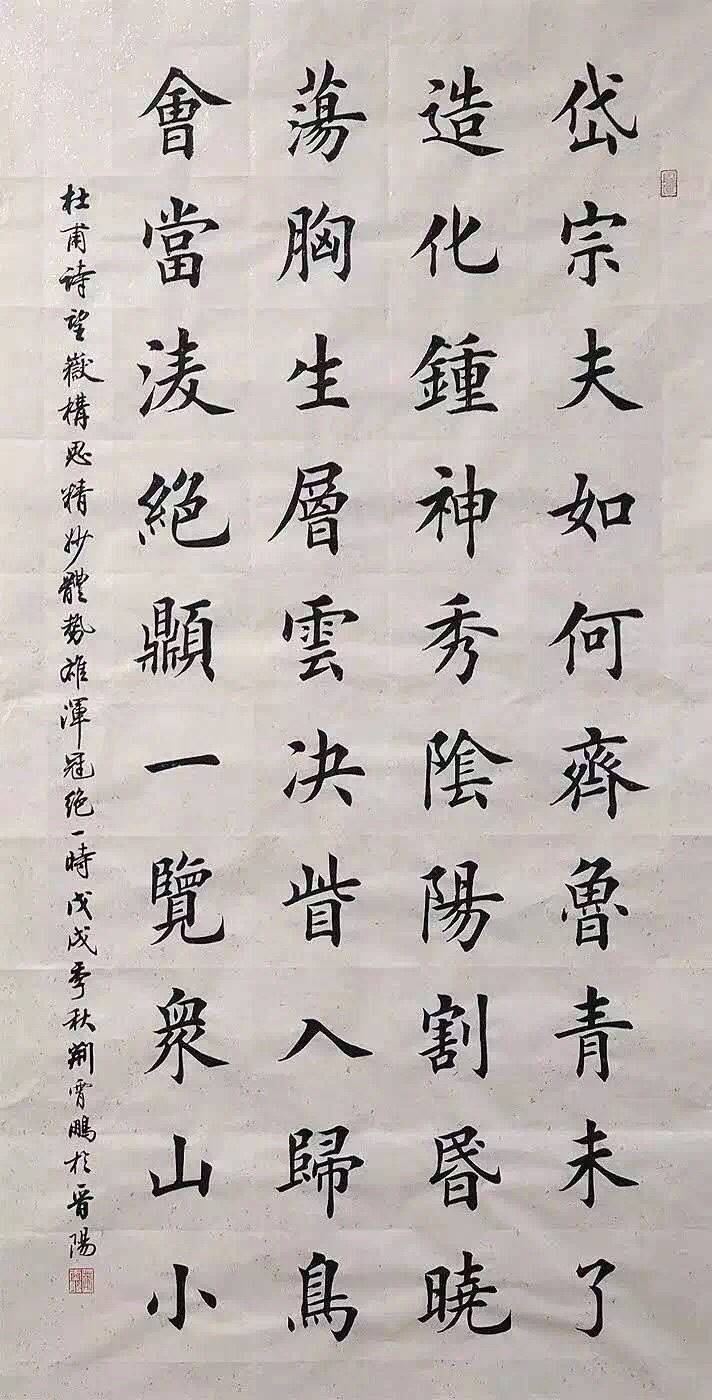 岱宗夫如何齊魯青未了
造化鍾神秀陰陽割昬曉
蕩胸生層雲决眥入歸鳥
會當淩絕顚一覽衆山小
杜甫詩望嶽構思精妙體勢雄渾冠絶一時戊戌季秋荆霄鵬於晋陽